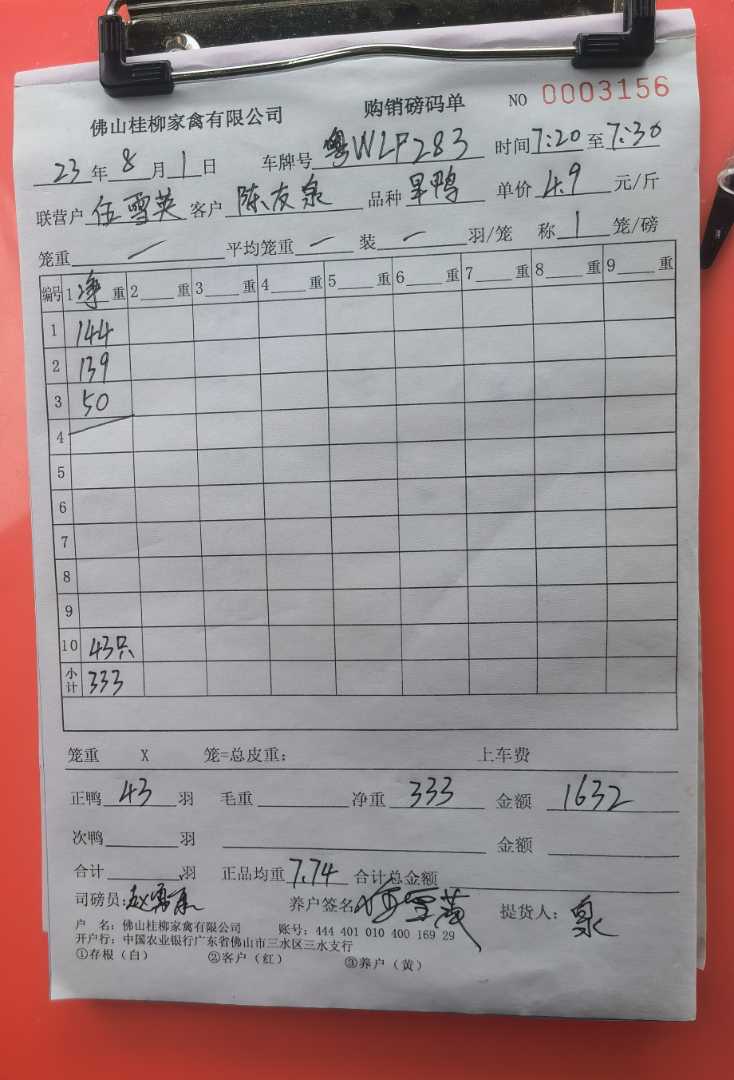 佛山桂柳家禽有限公司 购销磅码单 NO 0003156
23年8月1日 车牌号 粤WLP283 时间7:20至7:30
联营户 伍雪英 客户 陈友泉 品种 旱鸭 单价 4.9 元/斤
笼重 一 平均笼重 一 装 一 羽/笼 称 1 笼/磅
编号 1 净 重 2 重 3 重 4 重 5 重 6 重 7 重 8 重 9 重
1 144
2 139
3 50
4
5
6
7
8
9
10 43只
小计 333
笼重 X 笼=总皮重: 上车费
正鸭 43 羽 毛重 净重 333 金额 1632
次鸭 羽 金额
合计 羽 正品均重 7.74 合计总金额
司磅员: 养户签名 提货人: 泉
户 名: 佛山桂柳家禽有限公司 账号: 444 401 010 400 169 29
开户行: 中国农业银行广东省佛山市三水区三水支行
①存根(白) ②客户(红) ③养户(黄)